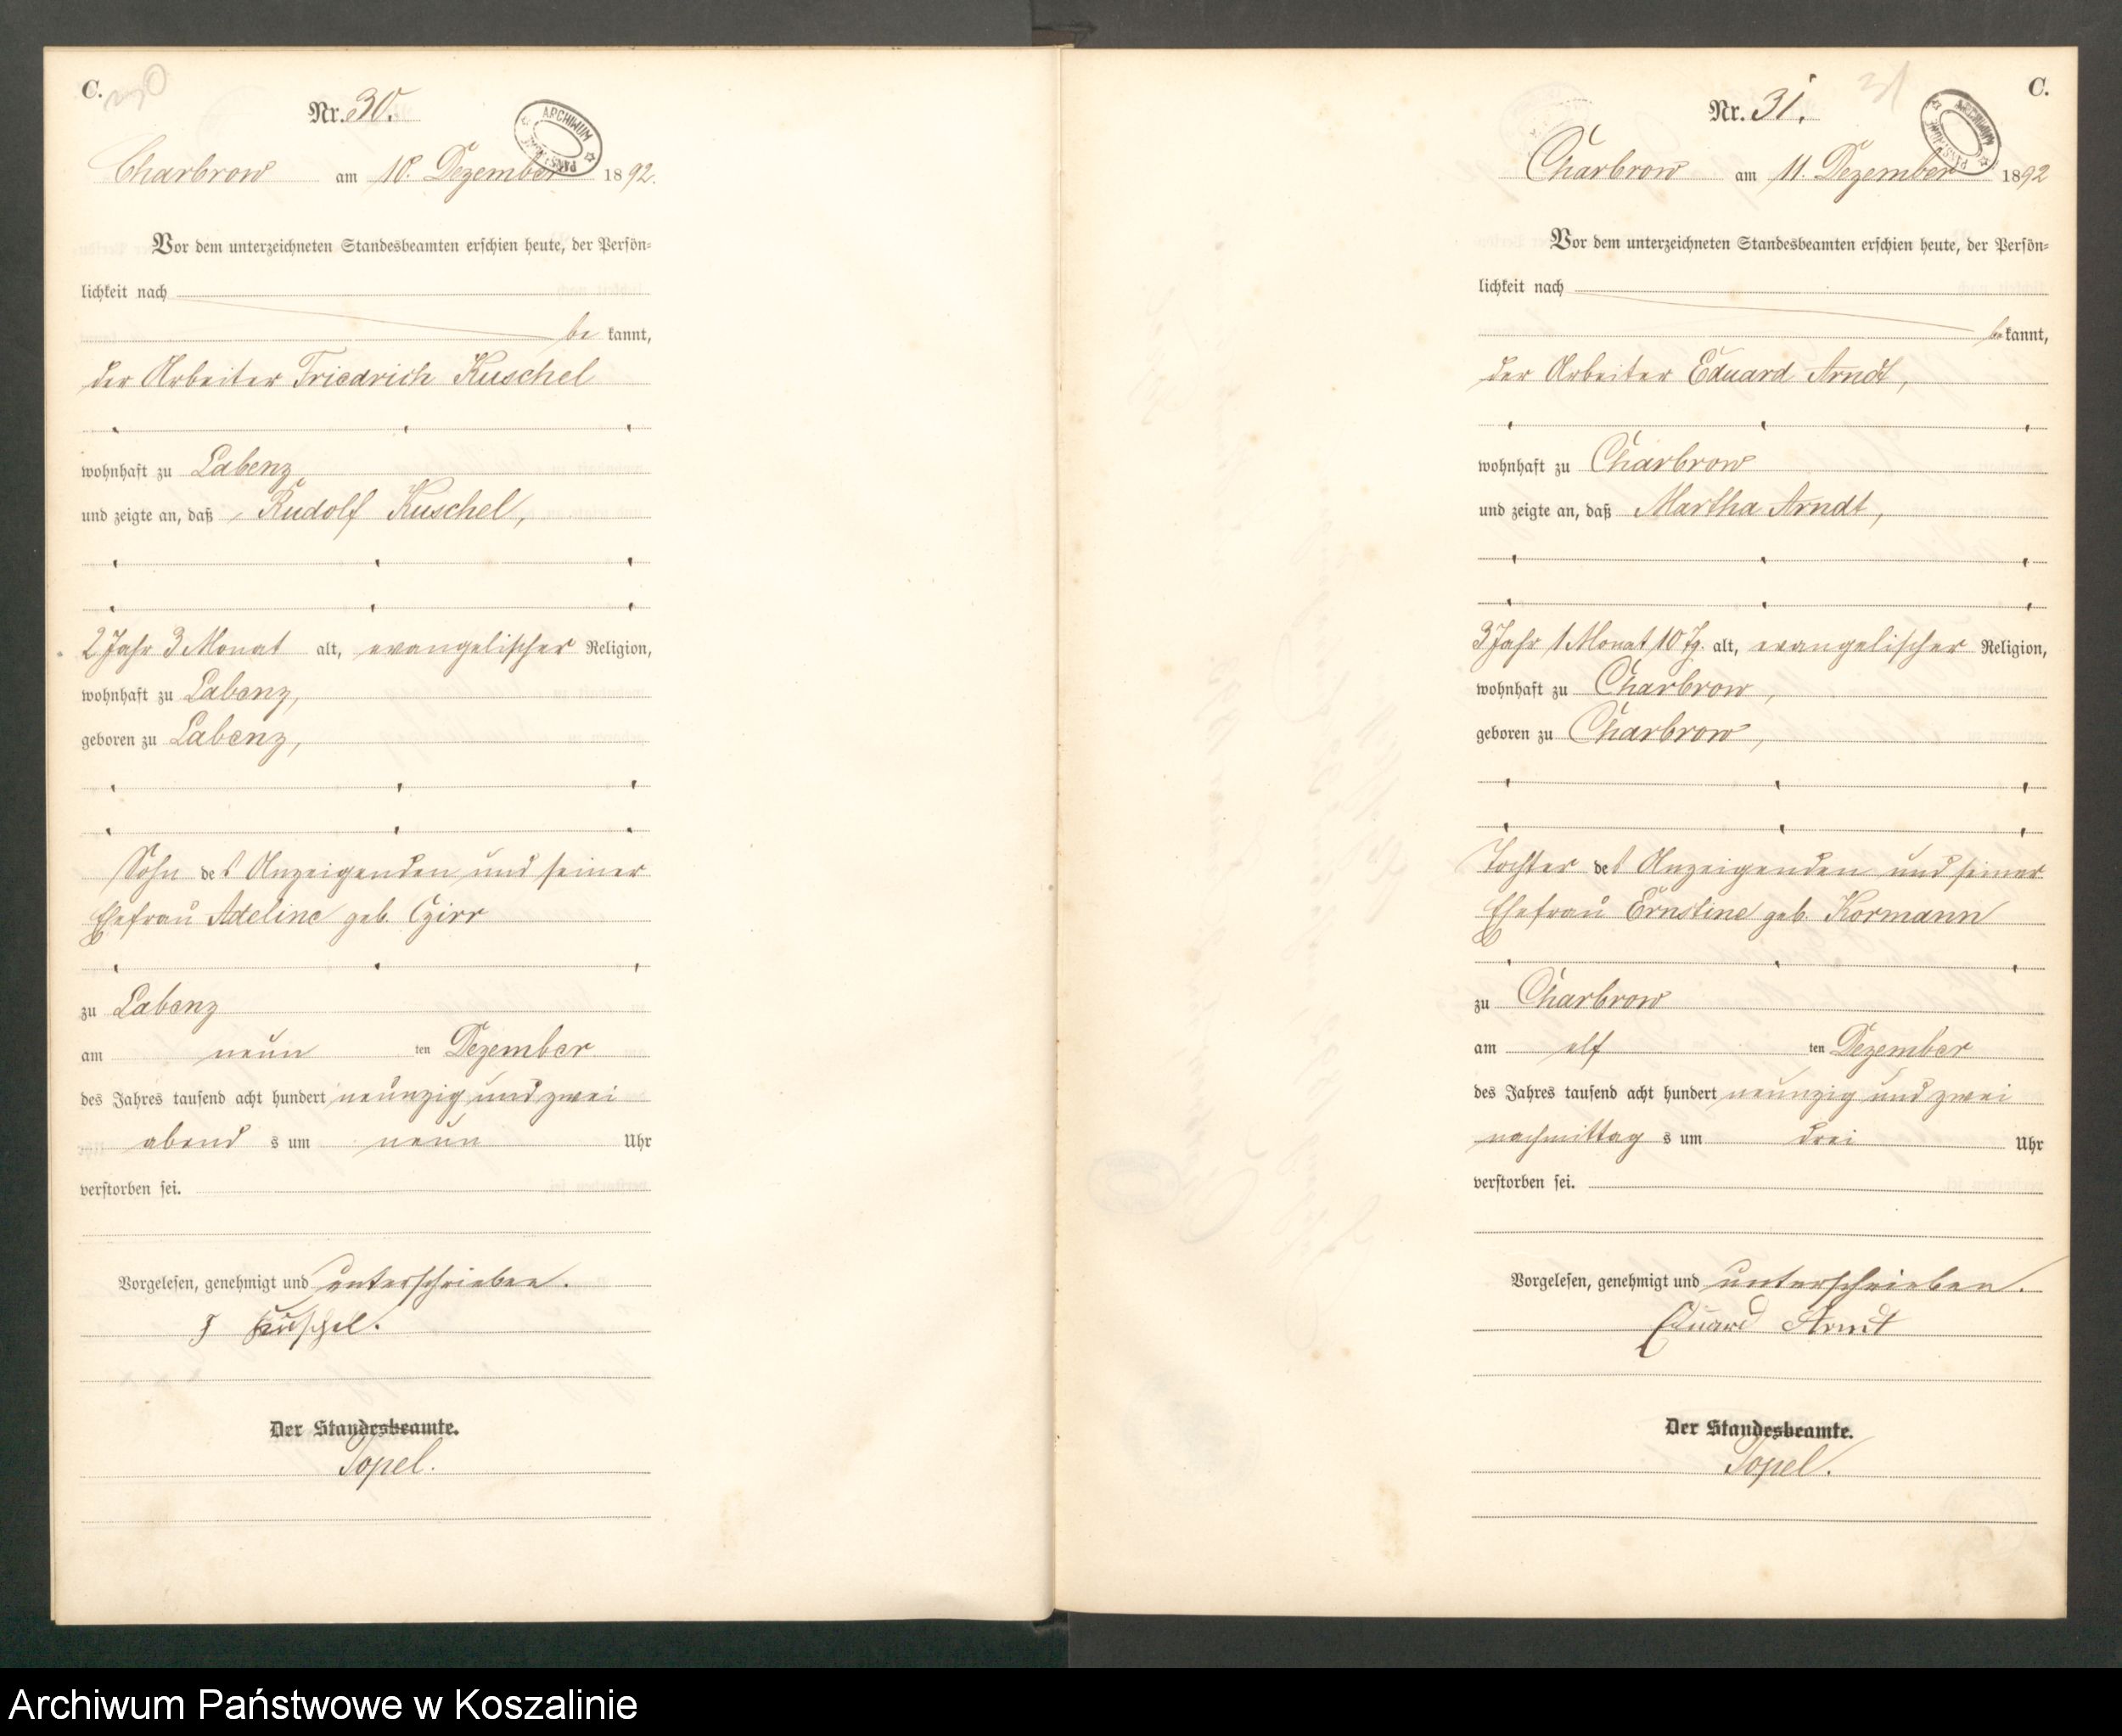 C.
30
Nr. 30.
ARCHIWUM
Charbrow am 10. Dezember 1892.
Vor dem unterzeichneten Standesbeamten erschien heute, der Persön-
lichkeit nach
be kannt,
der Arbeiter Friedrich Kuschel
wohnhaft zu Labenz
und zeigte an, daß Rudolf Kuschel,
2 Jahr 3 Monat alt, evangelischer Religion,
wohnhaft zu Labenz,
geboren zu Labenz,
Sohn des Anzeigenden und seiner
Ehefrau Adeline geb. Czirr
zu Labenz
am neun ten Dezember
des Jahres tausend acht hundert neunzig und zwei
abend s um neun Uhr
verstorben sei.
Vorgelesen, genehmigt und unterschrieben.
F Kuschel.
Der Standesbeamte.
Topel.
31
C.
Nr. 31.
ARCHIWUM
Charbrow am 11. Dezember 1892
Vor dem unterzeichneten Standesbeamten erschien heute, der Persön-
lichkeit nach
be kannt,
der Arbeiter Eduard Arndt,
wohnhaft zu Charbrow
und zeigte an, daß Martha Arndt,
3 Jahr 1 Monat 10 Tg. alt, evangelischer Religion,
wohnhaft zu Charbrow,
geboren zu Charbrow,
Tochter des Anzeigenden und seiner
Ehefrau Ernstine geb. Kormann
zu Charbrow
am elf ten Dezember
des Jahres tausend acht hundert neunzig und zwei
nachmittag s um drei Uhr
verstorben sei.
Vorgelesen, genehmigt und unterschrieben.
Eduard Arndt
Der Standesbeamte.
Topel.
Archiwum Państwowe w Koszalinie